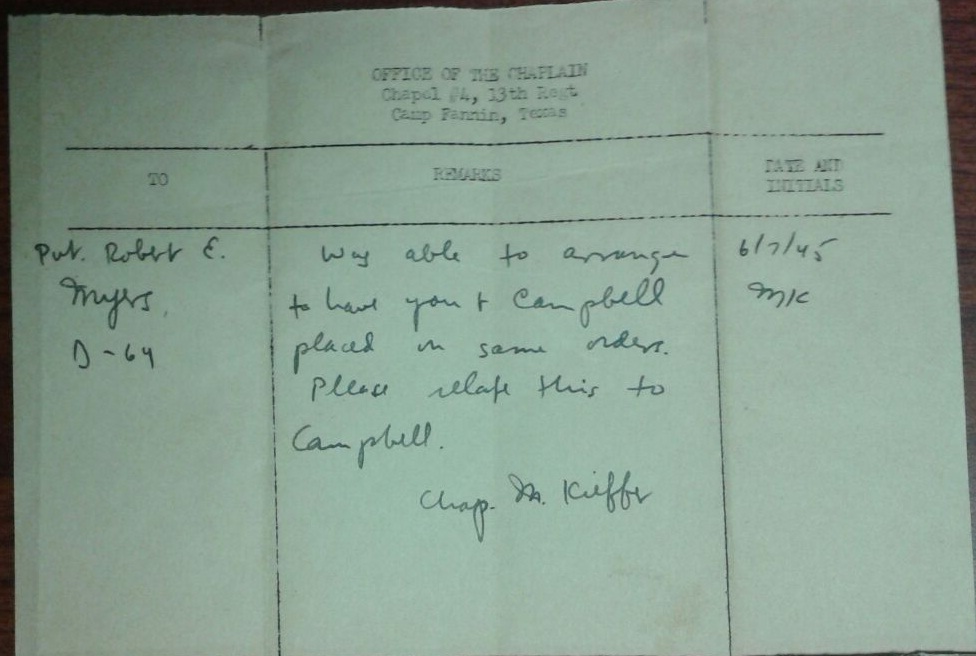 OFFICE OF THE CHAPLAIN
Chapel #4, 13th Regt
Camp Fannin, Texas
TO
REMARKS
DATE AND
INITIALS
Pvt. Robert E.
Myers
D-64
Was able to arrange
to have you + Campbell
placed on same orders.
Please relate this to
Campbell.
Chap. M. Kieffer
6/7/45
MK